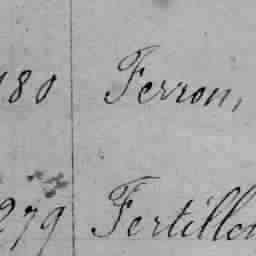 180 Ferron,
279 Fertillon